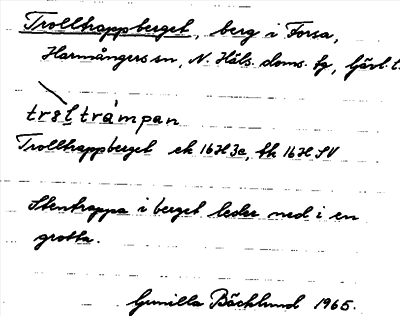 Trolltrappberget, berg i Forsa,
Harmångers sn, N. Häls. doms. fg, Gävl. l.
troltrámpan
Trolltrappberget ek 16H3e, tk 16H SV
Stentrappa i berget leder ned i en
grotta.
Gunilla Bäcklund 1965.